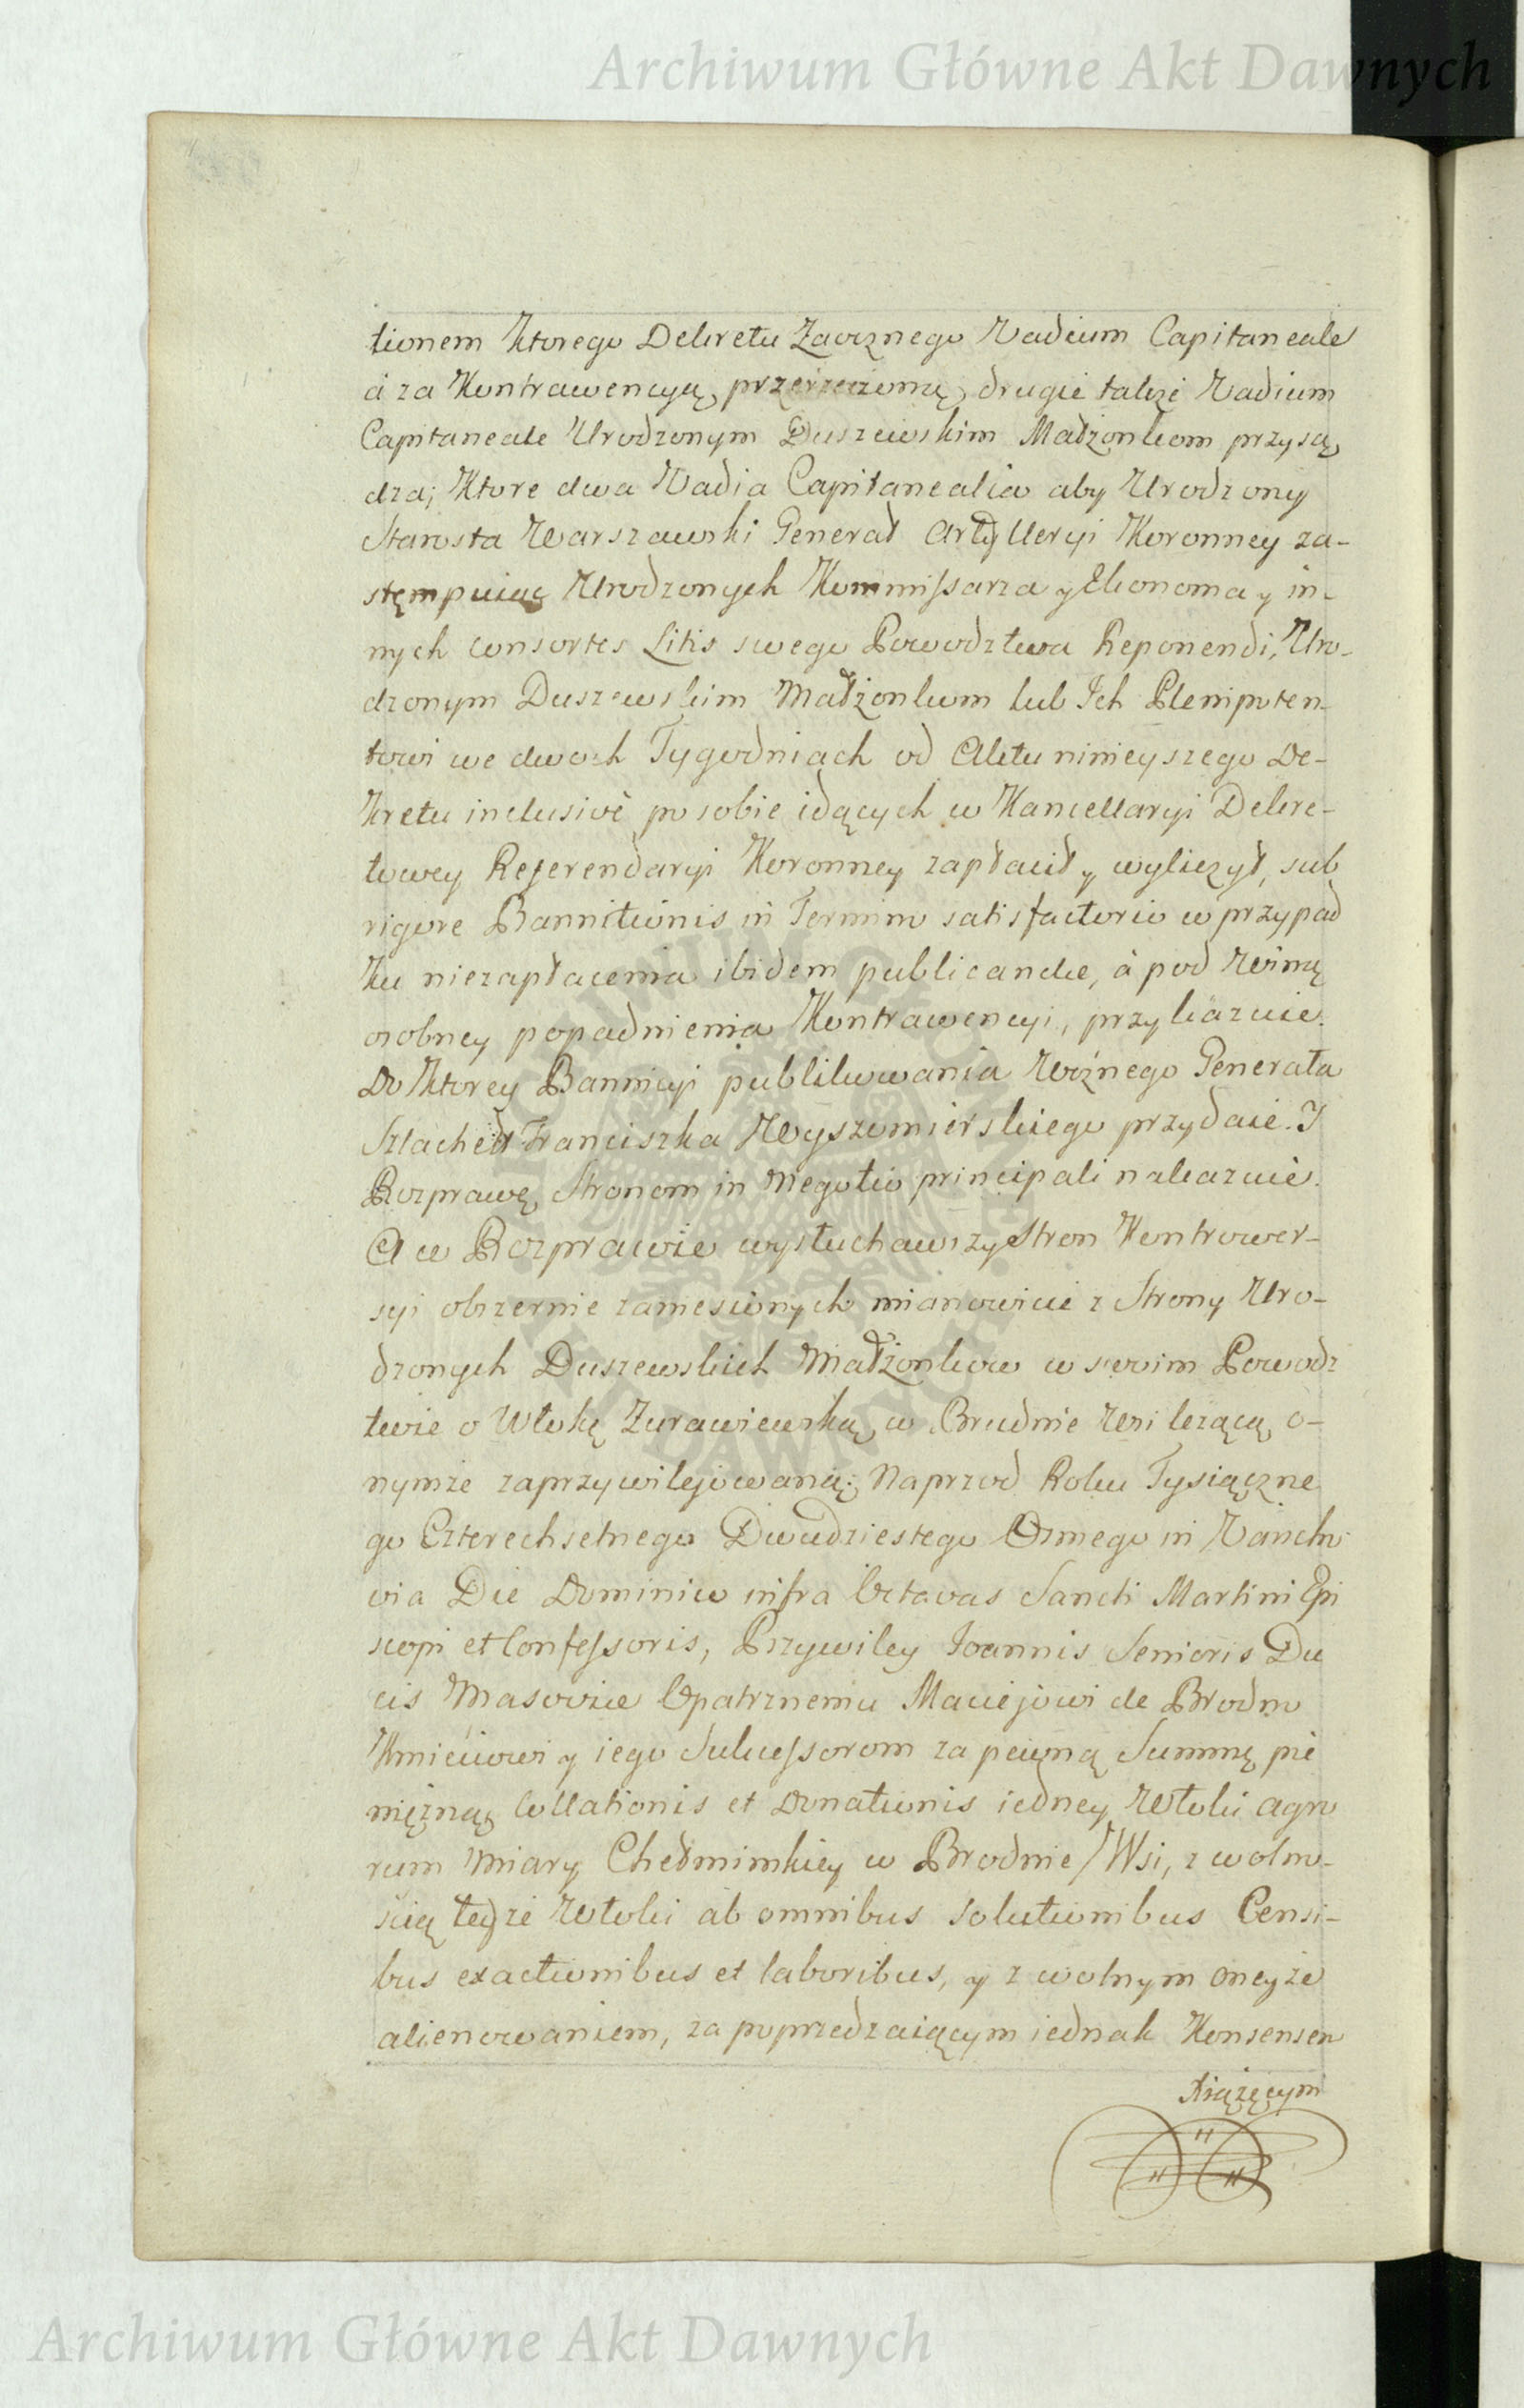 Archiwum Główne Akt Dawnych
tionem Ktorego Dekretu Zaocznego Vadium Capitaneale
à za Kontrawencyą przerzeczoną drugie także Vadium
Capitaneale Urodzonym Duszewskim Małżonkom przysą
dza; Ktore dwa Vadia Capitanealia aby Urodzony
Starosta Warszawski Generał Artylleryi Koronney za-
stęmpuiąc Urodzonych Kommissarza y Ekonoma y in-
nych consortes Litis swego Powodztwa Reponendi, Uro-
dzonym Duszewskim Małżonkom lub Ich Plenipoten-
towi we dwoch Tygodniach od Aktu ninieyszego De-
Kretu inclusivè po sobie idących w Kancellaryi Dekre-
towey Referendaryi Koronney zapłacił y wyliczył, sub
rigore Bannitionis in Termino satisfactorio w przypad
Ku niezapłacenia ibidem publicandæ, à pod Winą
osobney popadnienia Kontrawencyi, przykazuie.
Do Ktorey Bannicyi publikowania Woźnego Generała
Szlachet Franciszka Wyszomierskiego przydaie. I
Rozprawę Stronom in Negotio principali nakazuie.
A w Rozprawie wysłuchawszy Stron Kontrower-
syi obszernie zaniesionych mianowicie z Strony Uro-
dzonych Duszewskich Małżonkow w swoim Powodz
twie o Włokę Zurawiewską w Brudnie Wsi leżącą o-
nymże zaprzywilejowaną; Naprzod Roku Tysiączne
go Czterechsetnego Dwudziestego Osmego in Vanclo
via Die Dominico infra Octavas Sancti Martini Epi
scopi et Confessoris, Przywiley Joannis Senioris Du
cis Masoviæ Opatrznemu Maciejowi de Brodno
Kmieciowi y iego Sukcessorom za pewną Summę pie
niężną Collationis et Donationis iedney Włoki agro
rum Miary Chełmimkiey w Brodnie Wsi, z wolno-
ścią teyże Włoki ab omnibus solutionibus Censi-
bus exactionibus et laboribus, y z wolnym oneyże
alienowaniem, za poprzedzaiącym iednak Konsensem
Xiążęcym
Archiwum Główne Akt Dawnych